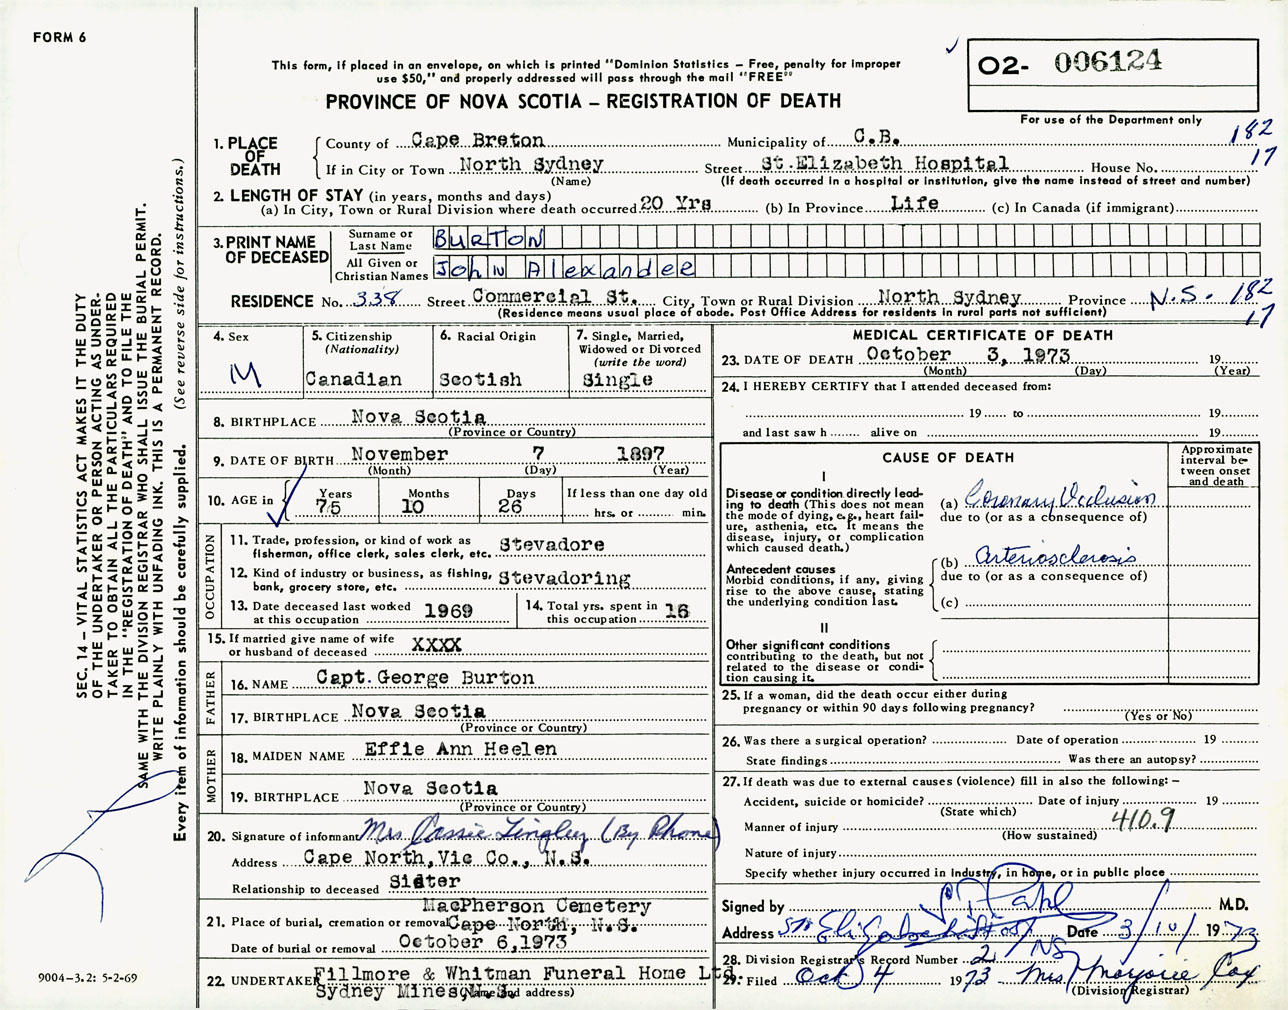 FORM 6
This form, if placed in an envelope, on which is printed "Dominion Statistics – Free, penalty for improper
use $50," and properly addressed will pass through the mail "FREE"
PROVINCE OF NOVA SCOTIA – REGISTRATION OF DEATH
O2- 006124
For use of the Department only
182
17
1. PLACE OF DEATH
County of Cape Breton Municipality of C.B.
If in City or Town North Sydney Street St.Elizabeth Hospital House No.
(Name) (If death occurred in a hospital or institution, give the name instead of street and number)
2. LENGTH OF STAY (in years, months and days)
(a) In City, Town or Rural Division where death occurred 20 Yrs (b) In Province Life (c) In Canada (if immigrant)
3. PRINT NAME OF DECEASED
Surname or Last Name BURTON
All Given or Christian Names John Alexander
RESIDENCE No. 338 Street Commercial St. City, Town or Rural Division North Sydney Province N.S. 182
17
(Residence means usual place of abode. Post Office Address for residents in rural parts not sufficient)
4. Sex
M
5. Citizenship
(Nationality)
Canadian
6. Racial Origin
Scotish
7. Single, Married,
Widowed or Divorced
(write the word)
Single
8. BIRTHPLACE Nova Scotia
(Province or Country)
9. DATE OF BIRTH November 7 1897
(Month) (Day) (Year)
10. AGE in
Years Months Days If less than one day old
75 10 26 hrs. or min.
OCCUPATION
11. Trade, profession, or kind of work as
fisherman, office clerk, sales clerk, etc. Stevadore
12. Kind of industry or business, as fishing,
bank, grocery store, etc. Stevadoring
13. Date deceased last worked
at this occupation 1969
14. Total yrs. spent in
this occupation 16
15. If married give name of wife
or husband of deceased XXXX
FATHER
16. NAME Capt. George Burton
17. BIRTHPLACE Nova Scotia
(Province or Country)
MOTHER
18. MAIDEN NAME Effie Ann Heelen
19. BIRTHPLACE Nova Scotia
(Province or Country)
20. Signature of informant Mrs Cassie Tingley (By Phone)
Address Cape North,Vic Co., N.S.
Relationship to deceased Sister
MacPherson Cemetery
21. Place of burial, cremation or removal Cape North, N.S.
Date of burial or removal October 6,1973
22. UNDERTAKER Fillmore & Whitman Funeral Home Ltd.
Sydney Mines, N.S.
(Name and address)
MEDICAL CERTIFICATE OF DEATH
23. DATE OF DEATH October 3, 1973 19
(Month) (Day) (Year)
24. I HEREBY CERTIFY that I attended deceased from:
19 to 19
and last saw h alive on 19
CAUSE OF DEATH
Approximate
interval be-
tween onset
and death
I
Disease or condition directly lead-
ing to death (This does not mean
the mode of dying, e.g., heart fail-
ure, asthenia, etc. It means the
disease, injury, or complication
which caused death.)
(a) Coronary Occlusion
due to (or as a consequence of)
Antecedent causes
Morbid conditions, if any, giving
rise to the above cause, stating
the underlying condition last.
(b) arteriosclerosis
due to (or as a consequence of)
(c)
II
Other significant conditions
contributing to the death, but not
related to the disease or condi-
tion causing it.
25. If a woman, did the death occur either during
pregnancy or within 90 days following pregnancy?
(Yes or No)
26. Was there a surgical operation? Date of operation 19
State findings Was there an autopsy?
27. If death was due to external causes (violence) fill in also the following: –
Accident, suicide or homicide? Date of injury 19
(State which)
Manner of injury 410.9
(How sustained)
Nature of injury
Specify whether injury occurred in Industry, in home, or in public place
Signed by M.D.
Address St Elizabeth Hosp Date 3/10/ 1973
NS
28. Division Registrar's Record Number 2
29. Filed Oct 4 1973 Mrs Marjorie Cox
(Division Registrar)
SEC. 14 – VITAL STATISTICS ACT MAKES IT THE DUTY
OF THE UNDERTAKER OR PERSON ACTING AS UNDER-
TAKER TO OBTAIN ALL THE PARTICULARS REQUIRED
IN THE "REGISTRATION OF DEATH" AND TO FILE THE
SAME WITH THE DIVISION REGISTRAR WHO SHALL ISSUE THE BURIAL PERMIT.
WRITE PLAINLY WITH UNFADING INK. THIS IS A PERMANENT RECORD.
Every item of information should be carefully supplied. (See reverse side for instructions.)
9004–3.2: 5-2-69